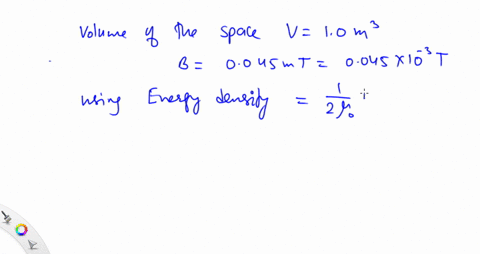 Volume of the space V = 1.0 m³
B = 0.045 mT = 0.045 × 10⁻³ T
using Energy density = 1/2μ₀